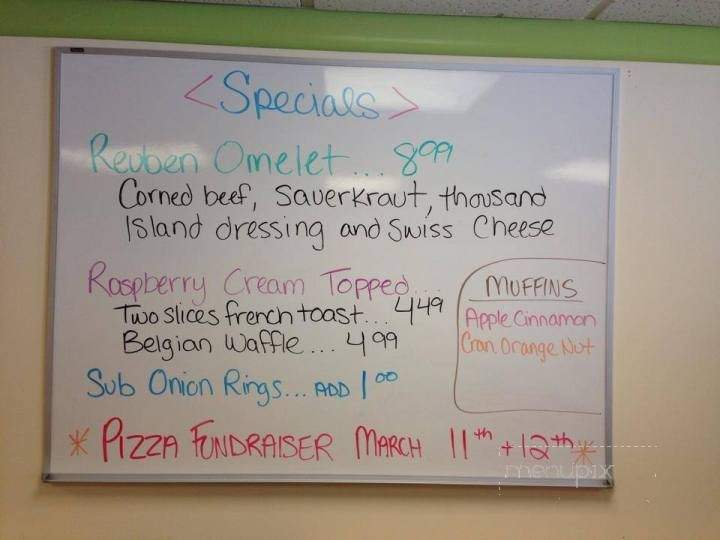 <Specials>
Reuben Omelet... 8.99
Corned beef, Sauerkraut, thousand
Island dressing and Swiss Cheese
Raspberry Cream Topped...
Two slices french toast... 4.49
Belgian Waffle... 4.99
Sub Onion Rings... ADD 1.00
MUFFINS
Apple Cinnamon
Cran Orange Nut
* PIZZA FUNDRAISER MARCH 11th + 12th *
menupix